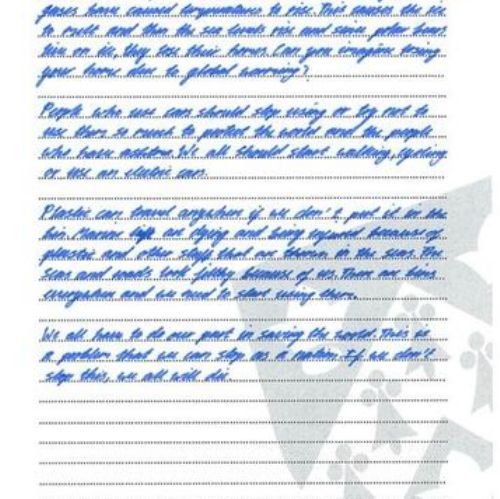 gases have caused temperatures to rise. This causes the ice
to melt and then the sea levels rise and since polar bears
live on ice, they lose their homes. Can you imagine losing
your home due to global warming?
People who use cars should stop using or try not to
use them so much to protect the world and the people
who have asthma. We all should start walking, cycling
or use an electric car.
Plastic can travel anywhere if we don't put it in the
bin. Marine life are dying and being injured because of
plastic and other stuff that are thrown in the sea. The
seas and roads look filthy because of us. There are bins
everywhere and we need to start using them.
We all have to do our part in saving the world. This is
a problem that we can stop as a nation. If we don't
stop this, we all will die.